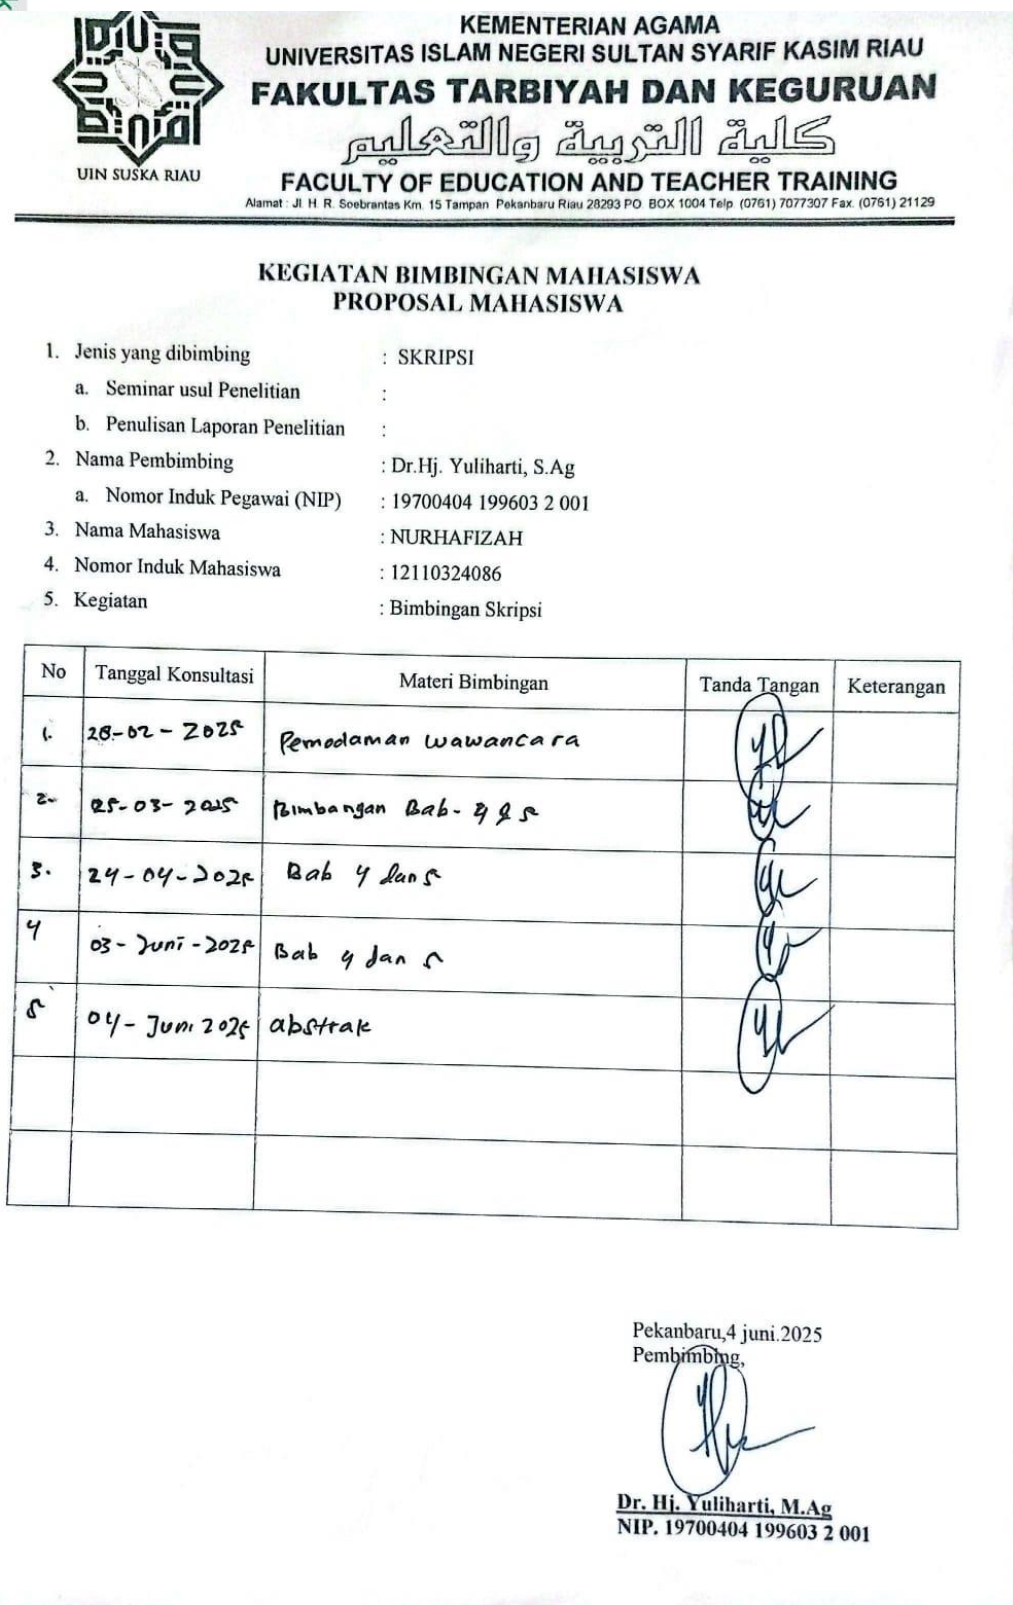 KEMENTERIAN AGAMA
UNIVERSITAS ISLAM NEGERI SULTAN SYARIF KASIM RIAU
FAKULTAS TARBIYAH DAN KEGURUAN
كلية التربية والتعليم
UIN SUSKA RIAU
FACULTY OF EDUCATION AND TEACHER TRAINING
Alamat : Jl. H. R. Soebrantas Km. 15 Tampan Pekanbaru Riau 28293 PO. BOX 1004 Telp. (0761) 7077307 Fax. (0761) 21129
KEGIATAN BIMBINGAN MAHASISWA
PROPOSAL MAHASISWA
1. Jenis yang dibimbing : SKRIPSI
a. Seminar usul Penelitian :
b. Penulisan Laporan Penelitian :
2. Nama Pembimbing : Dr.Hj. Yuliharti, S.Ag
a. Nomor Induk Pegawai (NIP) : 19700404 199603 2 001
3. Nama Mahasiswa : NURHAFIZAH
4. Nomor Induk Mahasiswa : 12110324086
5. Kegiatan : Bimbingan Skripsi
No Tanggal Konsultasi Materi Bimbingan Tanda Tangan Keterangan
1. 28-02-2025 Pemodaman wawancara
2. 25-03-2025 Bimbangan Bab-4 & 5
3. 24-04-2025 Bab 4 dan 5
4 03-Juni-2025 Bab 4 dan 5
5 04-Juni 2025 abstrak
Pekanbaru,4 juni.2025
Pembimbing,
Dr. Hj. Yuliharti, M.Ag
NIP. 19700404 199603 2 001